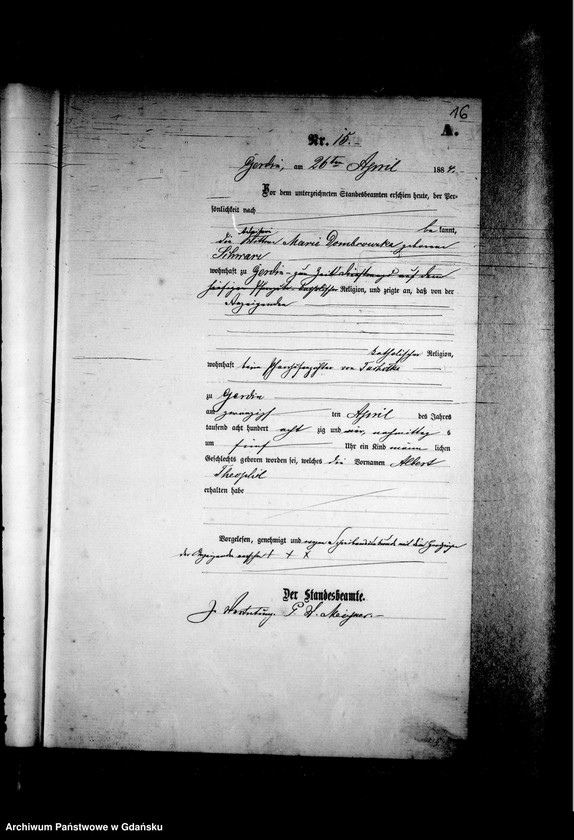 16
A.
Nr. 15.
Gerdin, am 26ten April 1884.
Vor dem unterzeichneten Standesbeamten erschien heute, der Per-
sönlichkeit nach
be kannt,
die Marie Dombrowska geborene
Schwarz
wohnhaft zu Gerdin zur Zeit auf dem
hiesigen katholischer Religion, und zeigte an, daß von der
Anzeigenden
katholischer Religion,
wohnhaft beim von
zu Gerdin
am zwanzigsten April des Jahres
tausend acht hundert acht zig und vier, nachmittag s
um fünf Uhr ein Kind männ lichen
Geschlechts geboren worden sei, welches die Vornamen Albert
Theophil
erhalten habe
Vorgelesen, genehmigt und wegen Schreibensunkunde mit dem Handzeichen
der Anzeigenden versehen + + +
Der Standesbeamte.
J. Vertretung.
Archiwum Państwowe w Gdańsku